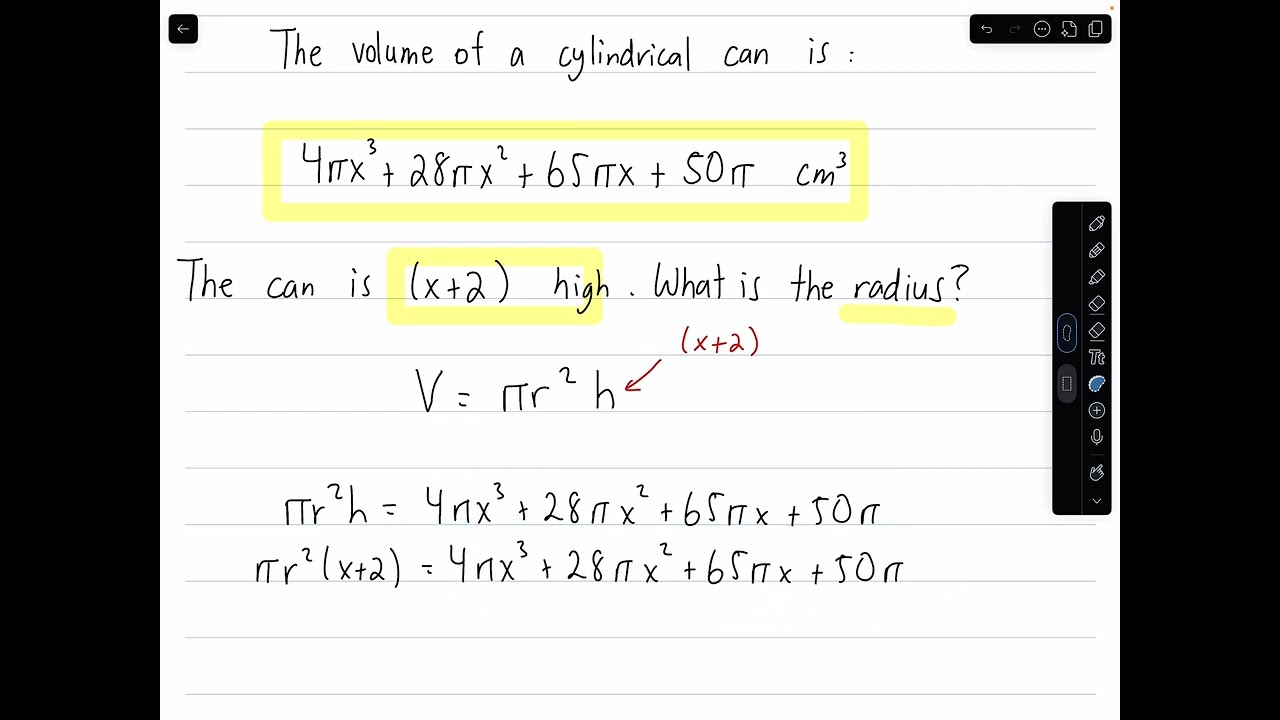 The volume of a cylindrical can is :
4πx³ + 28πx² + 65πx + 50π cm³
The can is (x+2) high. What is the radius?
(x+2)
V = πr² h
πr²h = 4πx³ + 28πx² + 65πx + 50π
πr²(x+2) = 4πx³ + 28πx² + 65πx + 50π
Tt